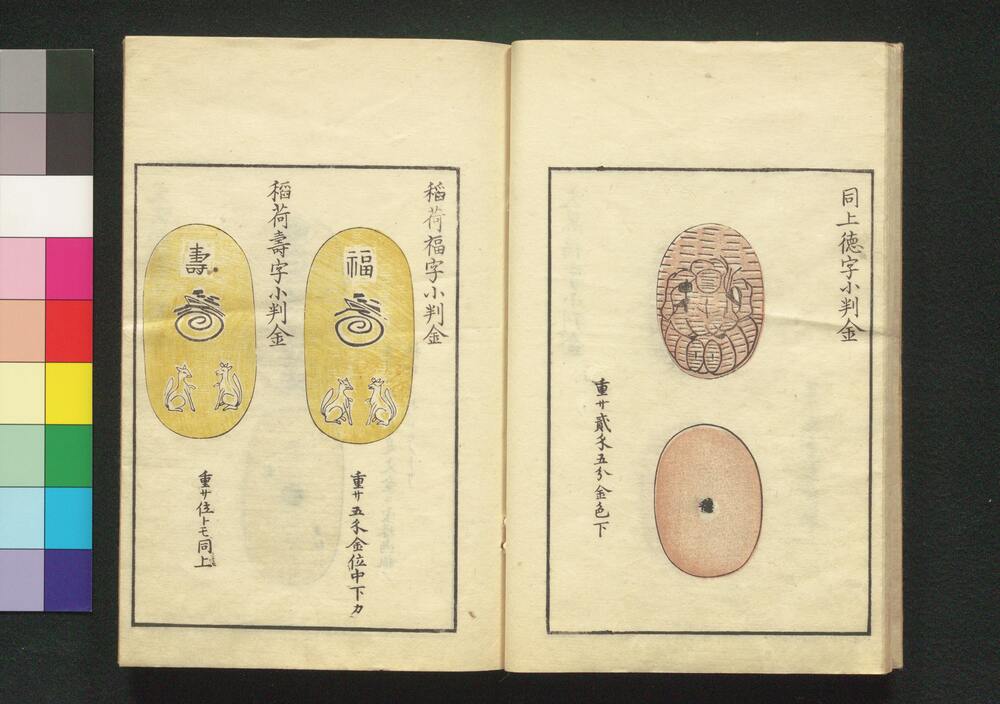 同上徳字小判金
重サ貳匁五分金色下
稲荷福字小判金
福
重サ五匁金位中下カ
稲荷壽字小判金
壽
重サ位トモ同上